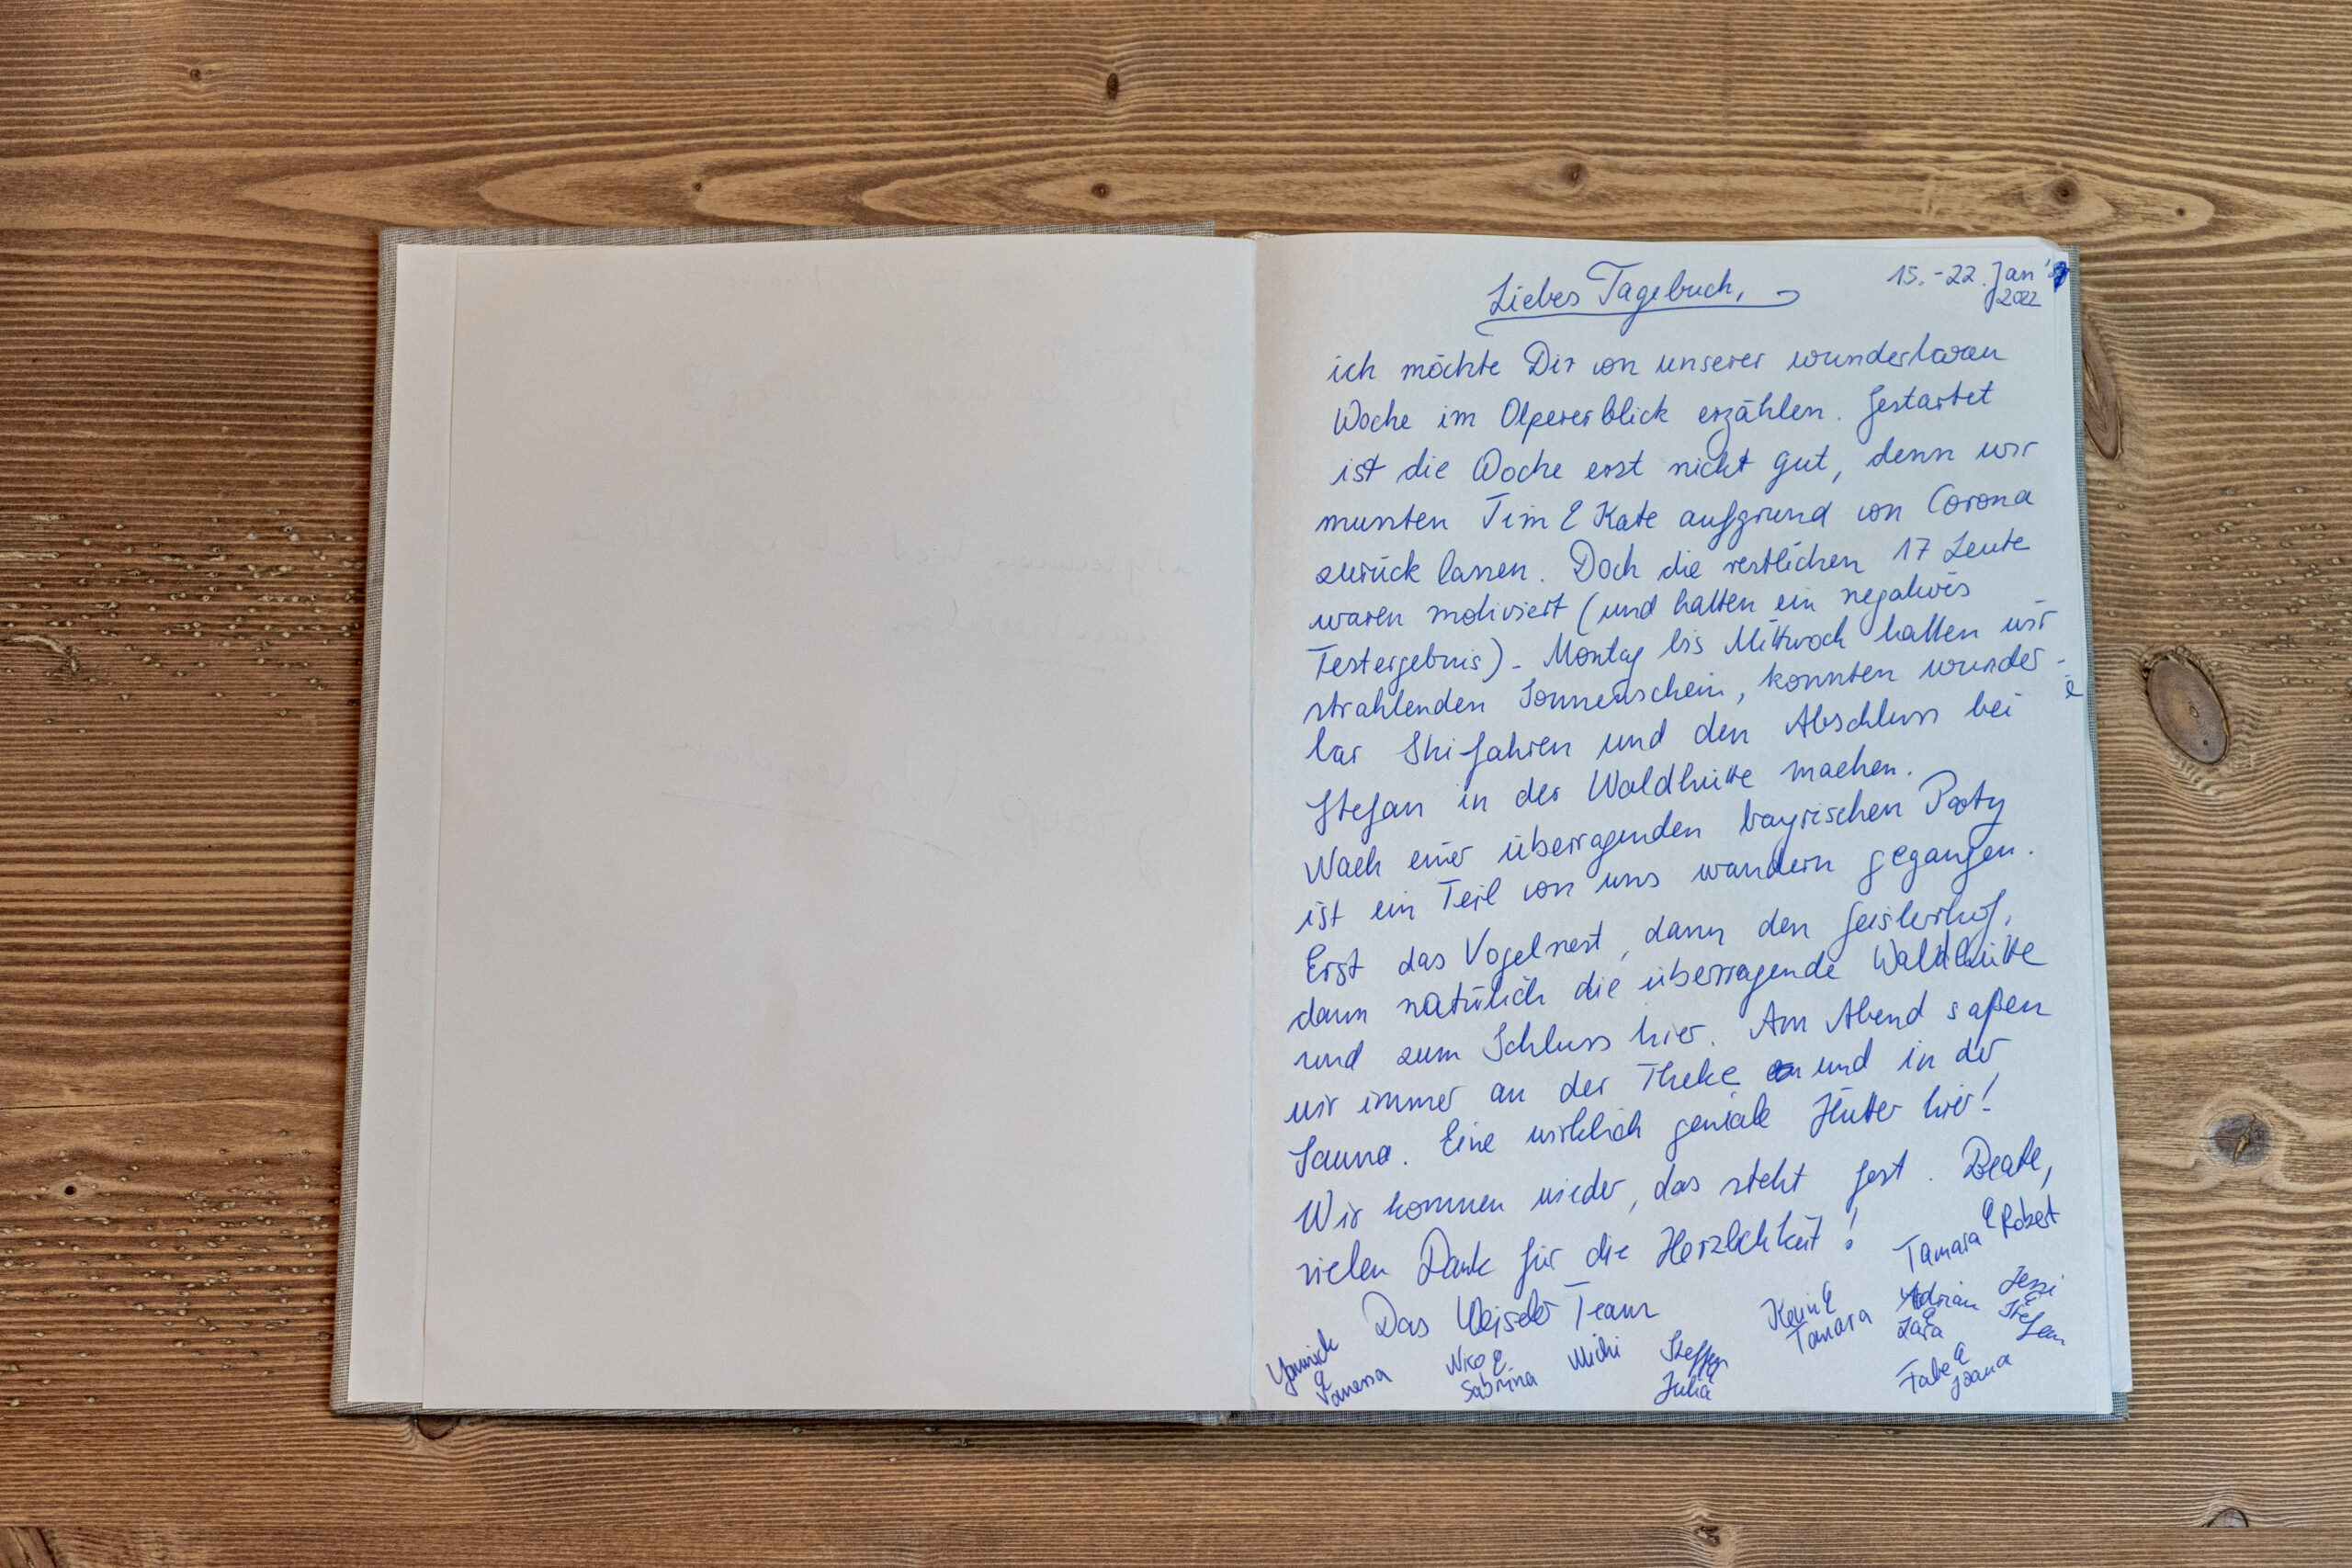 Liebes Tagebuch,
15.-22. Jan '
2022
ich möchte Dir von unserer wunderbaren
Woche im Olpererblick erzählen. Gestartet
ist die Woche erst nicht gut, denn wir
mussten Tim & Kate aufgrund von Corona
zurück lassen. Doch die restlichen 17 Leute
waren motiviert (und hatten ein negatives
Testergebnis). Montag bis Mittwoch hatten wir
strahlenden Sonnenschein, konnten wunder-
bar Skifahren und den Abschluss bei
Stefan in der Waldhütte machen.
Nach einer überragenden bayrischen Party
ist ein Teil von uns wandern gegangen.
Erst das Vogelnest, dann den Geislerhof,
dann natürlich die überragende Waldhütte
und zum Schluss hier. Am Abend saßen
wir immer an der Theke und in der
Sauna. Eine wirklich geniale Hütte hier!
Wir kommen wieder, das steht fest. Beate,
vielen Dank für die Herzlichkeit!
Das Team
Tamara & Robert
Kevin &
Tamara
Adrian
&
Lara
Jessi
&
Stefan
Yannick
&
Vanessa
Nico &
Sabrina
Michi
Steffen
&
Julia
Fabe &
Joana